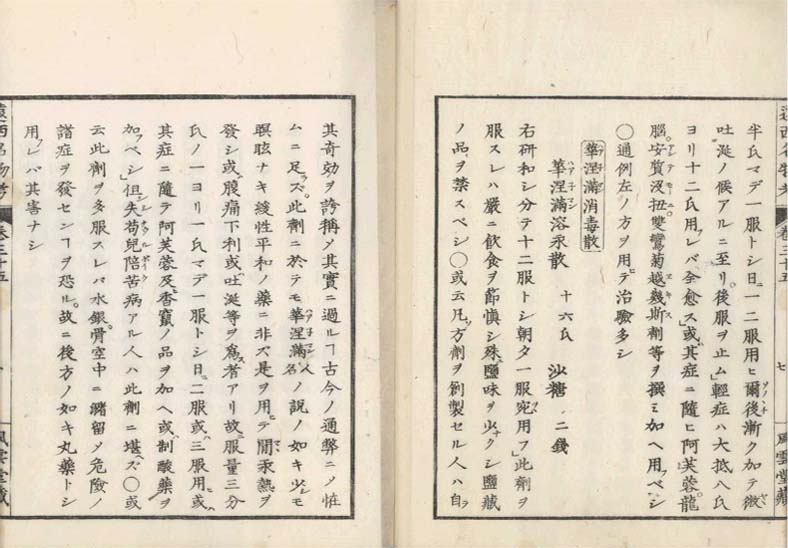 遠西名物考 卷三十五 七 風雲堂藏
半氏マデ一服トシ日ニ一二服用ヒ爾後漸ク加テ微
吐涎ノ候アルニ至リ。後服ヲ止ム」輕症ハ大抵八氏
ヨリ十二氏用フレバ全愈ス」或ハ其症ニ隨ヒ阿芙蓉。龍
腦。安質沒扭。雙鸞菊越幾斯劑等ヲ撰ミ加ヘ用フベシ
◯通例左ノ方ヲ用テ治驗多シ
華涅滿消毒散
華涅滿溶汞散 十六氏 沙糖 二錢
右研和シ分テ十二服トシ朝夕一服宛用フ」此劑ヲ
服スレハ嚴ニ飲食ヲ節慎シ殊ニ鹽味ヲ少クシ鹽藏
ノ品ヲ禁スベシ◯或云凡ソ方劑ヲ創製セル人ハ自ラ
其奇効ヲ誇稱ノ其實ニ過ルヿ古今ノ通弊ニノ恠
ムニ足ラズ。此劑ニ於テモ華涅滿人名ノ説ノ如キ少モ
瞑眩ナキ緩性平和ノ藥ニ非ズ是ヲ用テ間汞熱ヲ
發シ或ハ腹痛下利或ハ吐涎等ヲ爲ス者アリ故ニ服量三分
氏ノ一ヨリ一氏マデ一服トシ日ニ二服或ハ三服用ヒ或ハ
其症ニ隨テ阿芙蓉及ビ香竄ノ品ヲ加ヘ或ハ制酸藥ヲ
加フベシ」但失苟兒陪苦病アル人ハ此劑ニ堪ヘズ◯或
云此劑ヲ多服スレバ水銀。骨空中ニ瀦留メ危險ノ
諸症ヲ發センヿヲ恐ル。故ニ後方ノ如キ丸藥トシ
用フレバ其害ナシ
遠西名物考 卷三十五 風雲堂藏